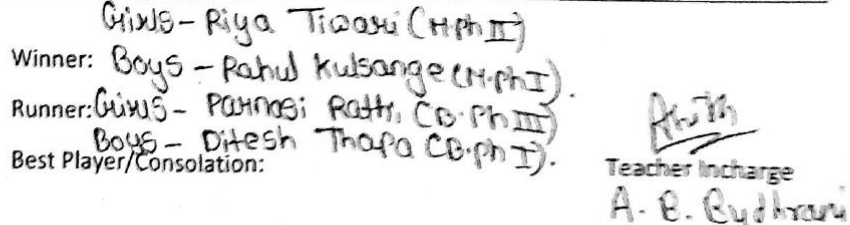 Girls - Riya Tiwari (M.Ph II)
Winner: Boys - Rahul Kulsange (M.Ph I).
Runner: Girls - Parnasi Rattr, (B.Ph III)
Boys - Ditesh Thapa (B.Ph I).
Best Player/Consolation:
Teacher Incharge
A. B. Budhrani